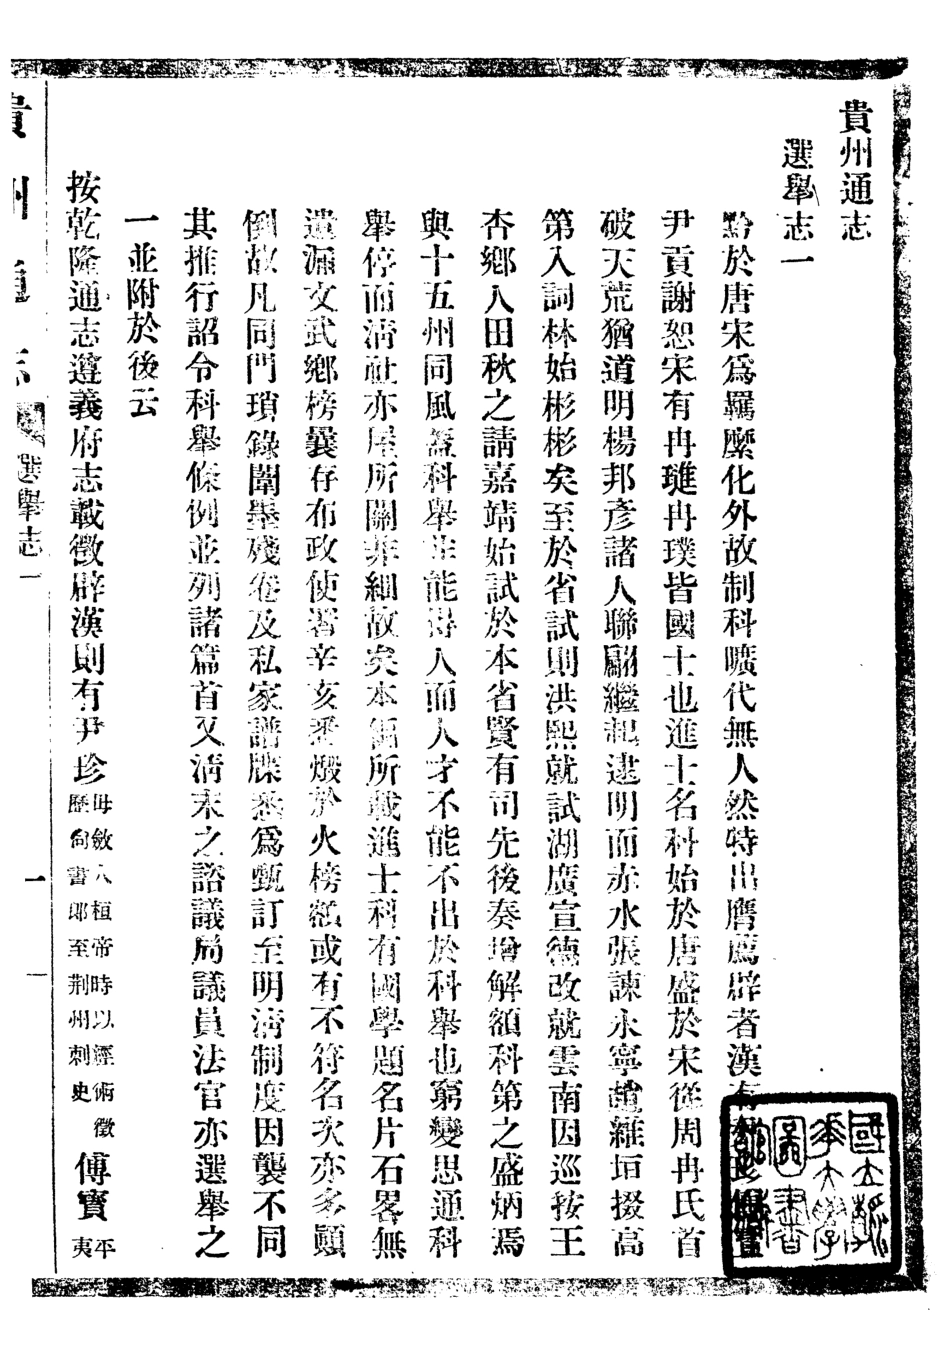 貴州通志
選舉志一
黔於唐宋爲羈縻化外故制科曠代無人然特出膺薦辟者漢有
尹貢謝恕宋有冉璡冉璞皆國士也進士名科始於唐盛於宋從周冉氏首
破天荒猶道明楊邦彥諸人聯翩繼起逮明而赤水張諫永寧趙維垣掇高
第入詞林始彬彬矣至於省試則洪熙就試湖廣宣德改就雲南因巡按王
杏鄉人田秋之請嘉靖始試於本省賢有司先後奏增解額科第之盛炳焉
與十五州同風蓋科舉非能得人而人才不能不出於科舉也窮變思通科
舉停而清社亦屋所關非細故矣本編所載進士科有國學題名片石畧無
遺漏文武鄉榜曩存布政使署辛亥悉燬於火榜額或有不符名次亦多顚
倒故凡同門瑣錄闈墨殘卷及私家譜牒悉爲甄訂至明清制度因襲不同
其推行詔令科舉條例並列諸篇首又清末之諮議局議員法官亦選舉之
一並附於後云
按乾隆通志遵義府志載徵辟漢則有尹珍毋斂人桓帝時以經術徵歷尚書郎至荆州刺史傅寶平夷
貴州通志
選舉志一
一
國立清華大學圖書館